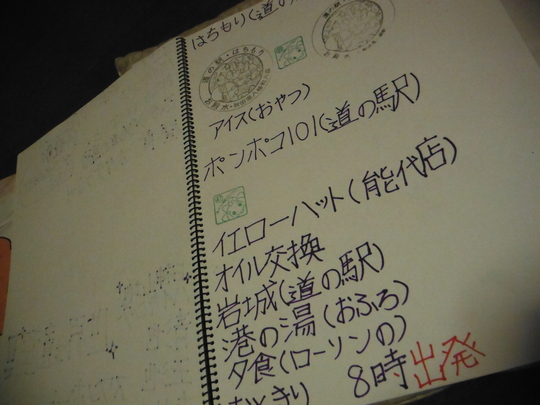 はちもり(道の
アイス(おやつ)
ポンポコ101(道の駅)
イエローハット(能代店)
オイル交換
岩城(道の駅)
港の湯(おふろ)
夕食(ローソンの)
8時出発